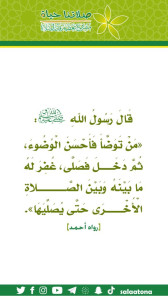 صلاتنا حياة
قَالَ رَسُولُ اللَّه ﷺ:
«مَنْ تَوَضَّأَ فَأَحْسَنَ الْوُضُوءَ،
ثُمَّ دَخَلَ فَصَلَّى، غُفِرَ لَهُ
مَا بَيْنَهُ وَبَيْنَ الصَّلَاةِ
الْأُخْرَى حَتَّى يُصَلِّيَهَا».
[رواه أحمد]
salaatona